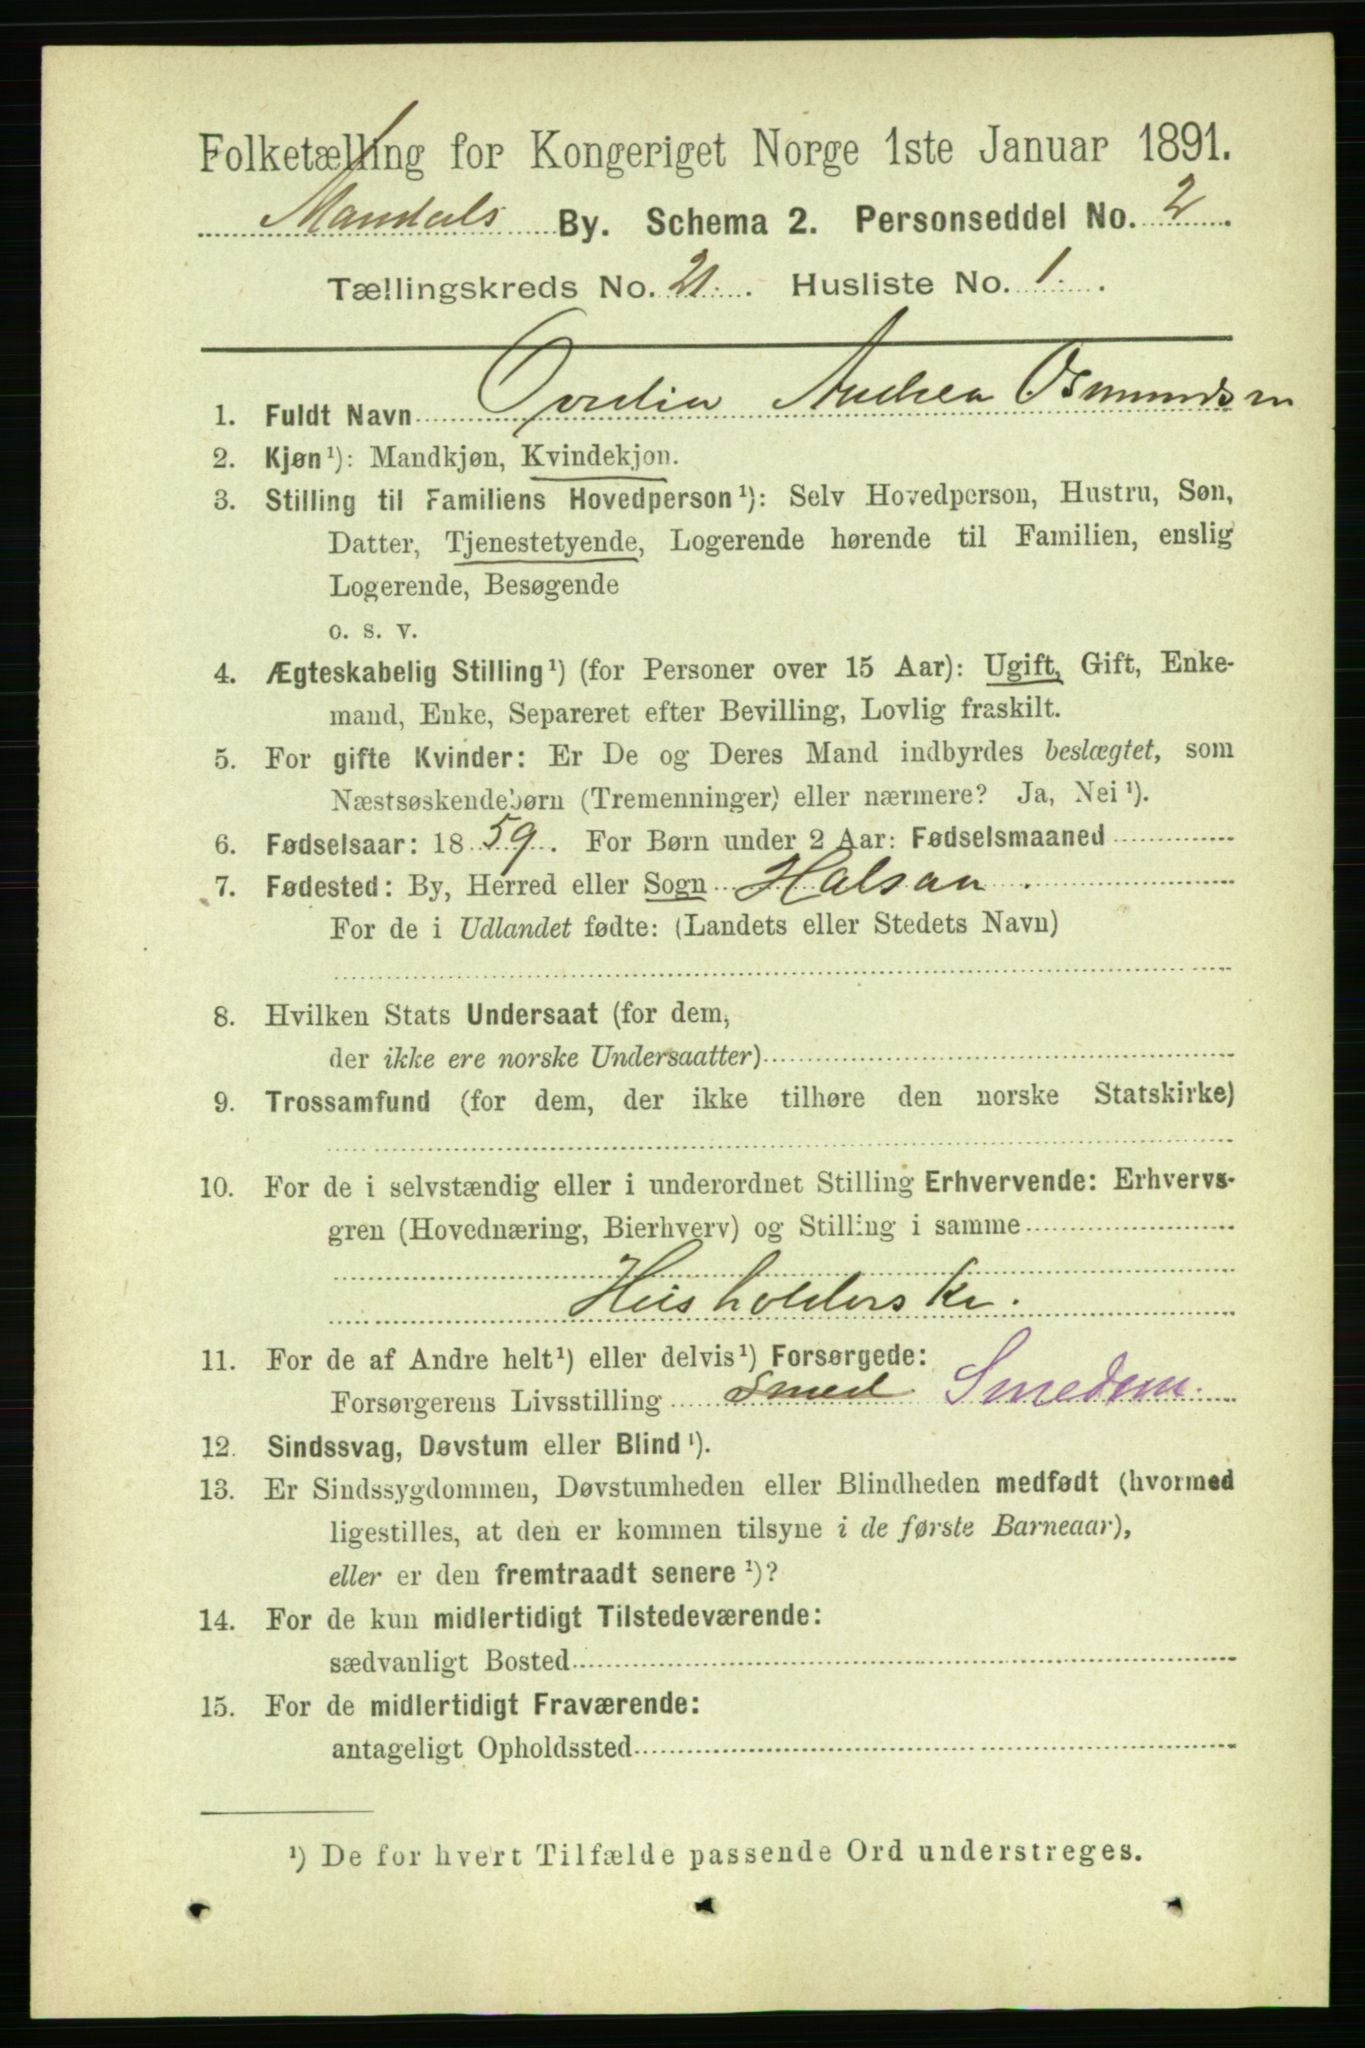 Folketælling for Kongeriget Norge 1ste Januar 1891.
Mandals By. Schema 2. Personseddel No. 2.
Tællingskreds No. 21. Husliste No. 1.
1. Fuldt Navn Andrea Osmundsen
2. Kjøn¹): Mandkjøn, Kvindekjøn.
3. Stilling til Familiens Hovedperson¹): Selv Hovedperson, Hustru, Søn,
Datter, Tjenestetyende, Logerende hørende til Familien, enslig
Logerende, Besøgende
o. s. v.
4. Ægteskabelig Stilling¹) (for Personer over 15 Aar): Ugift, Gift, Enke-
mand, Enke, Separeret efter Bevilling, Lovlig fraskilt.
5. For gifte Kvinder: Er De og Deres Mand indbyrdes beslægtet, som
Næstsøskendebørn (Tremenninger) eller nærmere? Ja, Nei¹).
6. Fødselsaar: 1859. For Børn under 2 Aar: Fødselsmaaned
7. Fødested: By, Herred eller Sogn Halsaa.
For de i Udlandet fødte: (Landets eller Stedets Navn)
8. Hvilken Stats Undersaat (for dem,
der ikke ere norske Undersaatter)
9. Trossamfund (for dem, der ikke tilhøre den norske Statskirke)
10. For de i selvstændig eller i underordnet Stilling Erhvervende: Erhvervs-
gren (Hovednæring, Bierhverv) og Stilling i samme
Husholderske.
11. For de af Andre helt¹) eller delvis¹) Forsørgede:
Forsørgerens Livsstilling Smed Smedem.
12. Sindssvag, Døvstum eller Blind¹).
13. Er Sindssygdommen, Døvstumheden eller Blindheden medfødt (hvormed
ligestilles, at den er kommen tilsyne i de første Barneaar),
eller er den fremtraadt senere¹)?
14. For de kun midlertidigt Tilstedeværende:
sædvanligt Bosted
15. For de midlertidigt Fraværende:
antageligt Opholdssted
¹) De for hvert Tilfælde passende Ord understreges.